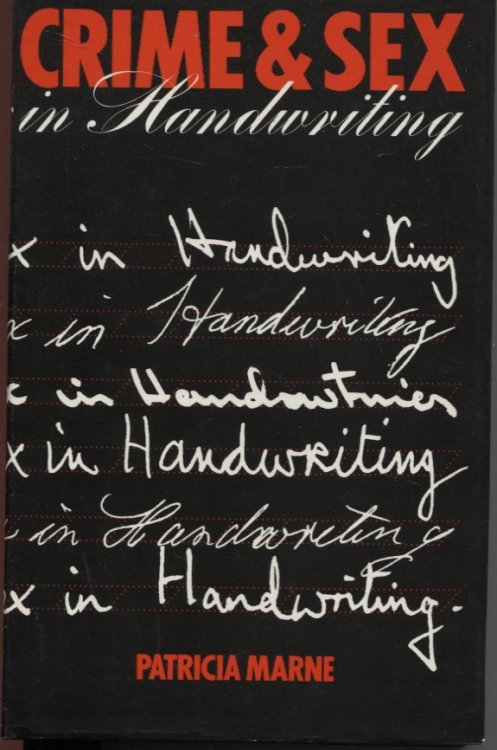 CRIME & SEX
in Handwriting
x in Handwriting
x in Handwriting
x in Handwriting
x in Handwriting
x in Handwreting
x in Handwriting.
PATRICIA MARNE